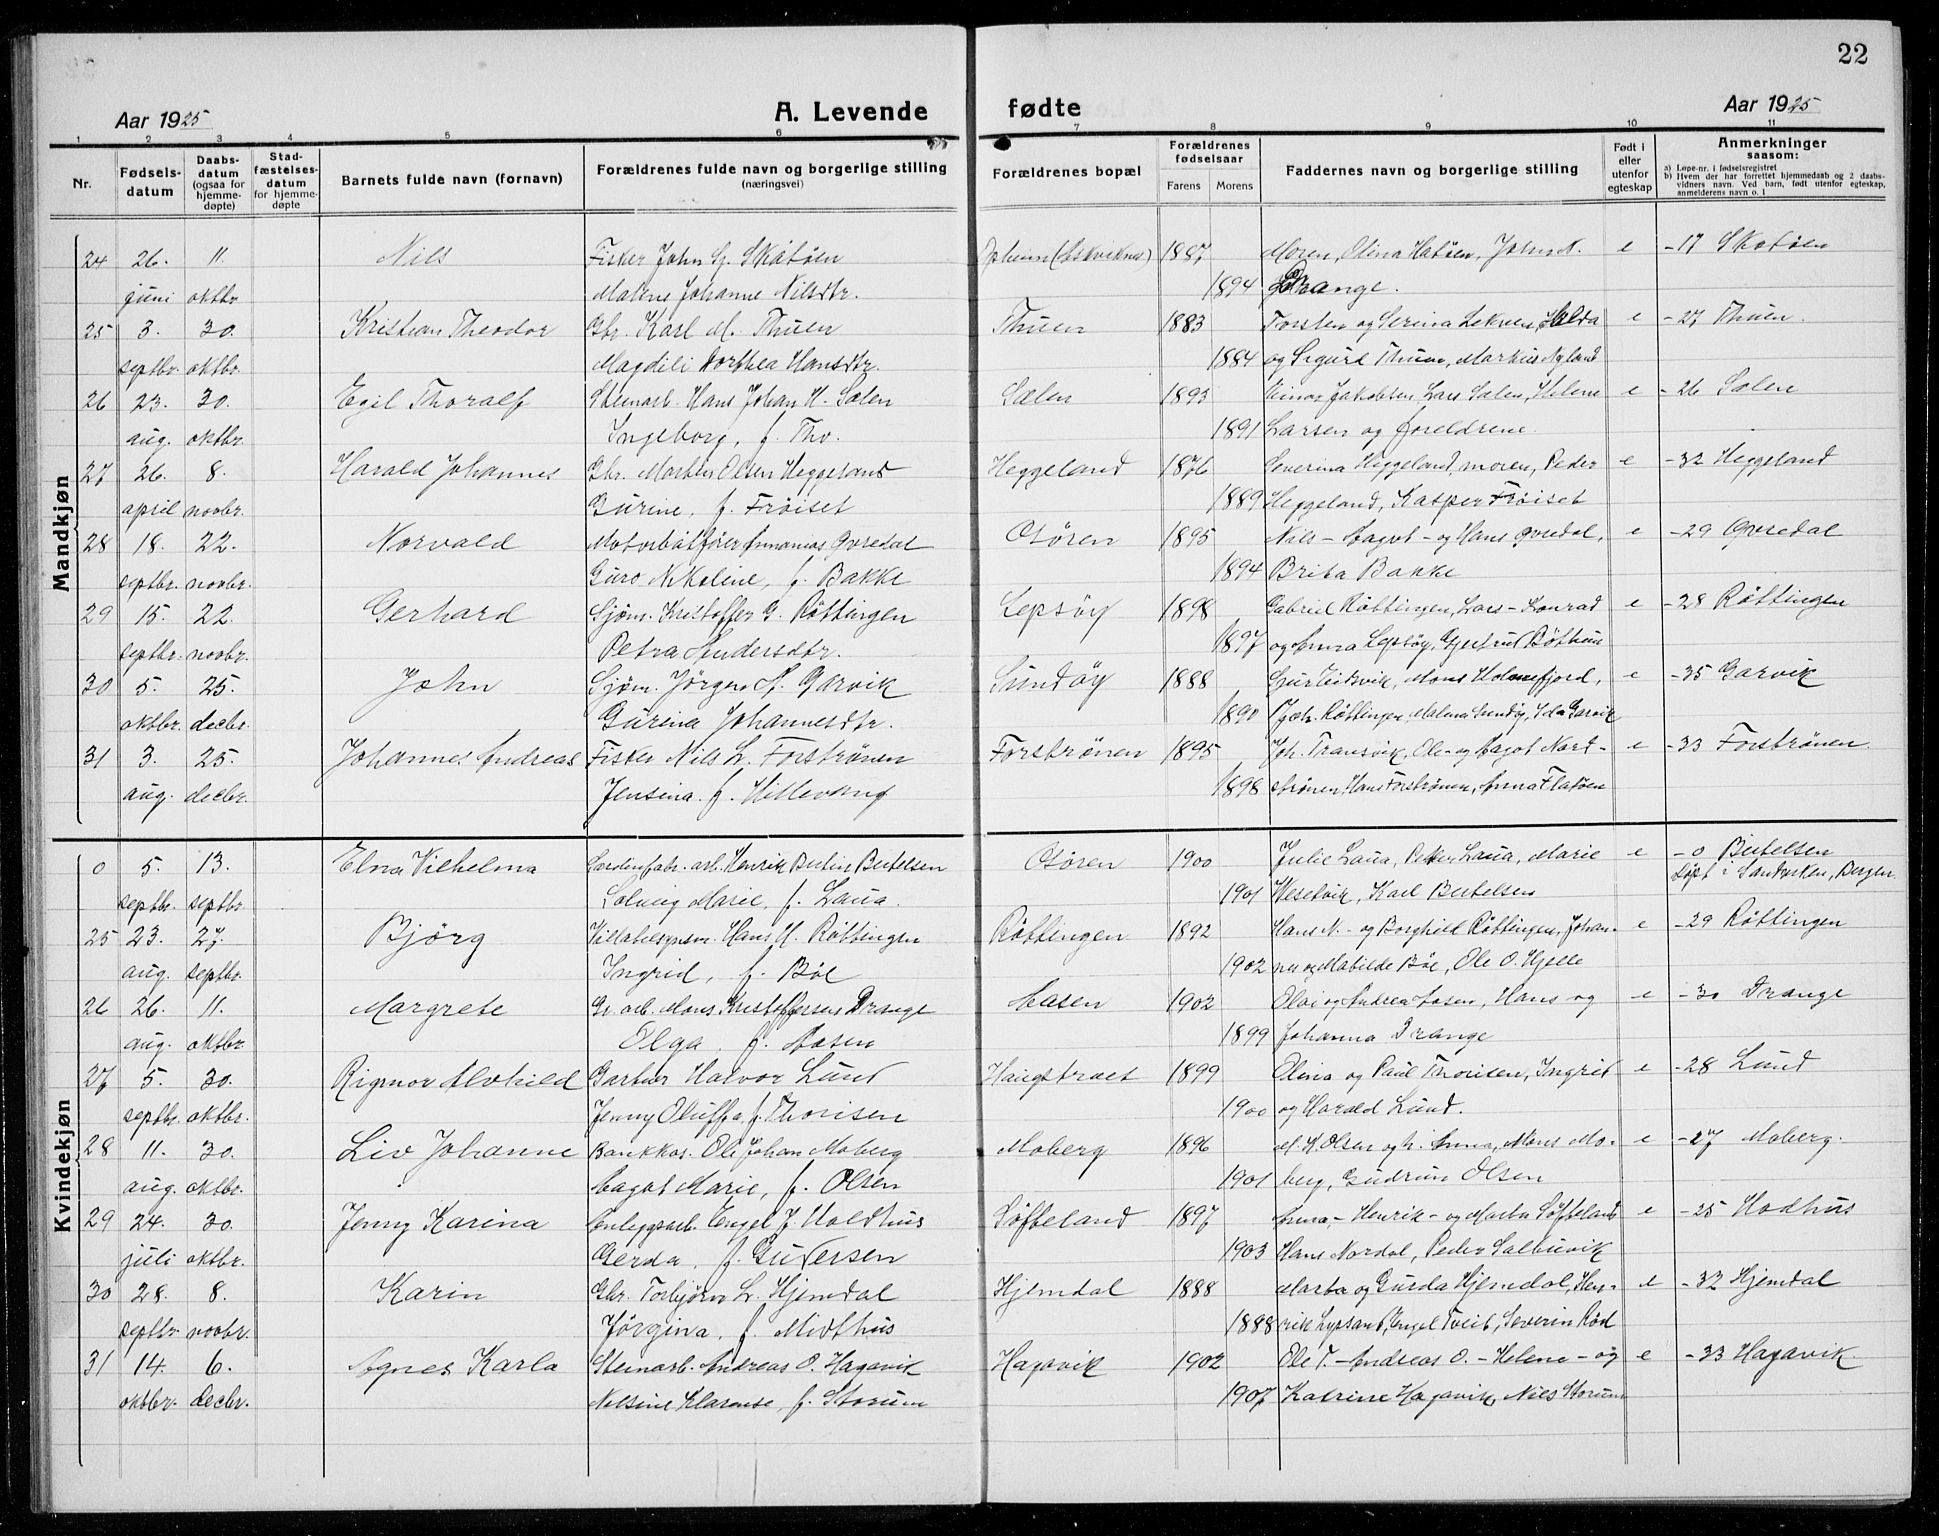 22
Aar 1925 A. Levende fødte Aar 1925
1 2 3 4 5 6 7 8 9 10 11
Nr. Fødsels-datum Daabs-datum (ogsaa for hjemme-døpte) Stad-fæstelses-datum for hjemme-døpte Barnets fulde navn (fornavn) Forældrenes fulde navn og borgerlige stilling (næringsvei) Forældrenes bopæl Forældrenes fødselsaar Farens Morens Faddernes navn og borgerlige stilling Født i eller utenfor egteskap Anmerkninger saasom:
a) Løpe-nr. i fødselsregistret
b) Hvem der har forrettet hjemmedaab og 2 daabs-vidners navn. Ved barn, født utenfor egteskap, anmelderens navn o. l
Mandkjøn
24 26. 11. Nils Fisker John G. Skåtøen 1887 Moren, Olina Hatøen, John N. e - 17 Skotøen
juni oktbr. Malene Johanne Nilsdtr. 1894 Drange.
25 3. 30. Kristian Theodor Gbr. Karl M. Thuen Thuen 1883 Torsten og Serina Leknen, Halda e - 27 Thuen
septbr. oktbr. Magdili Dorthea Hansdtr. 1884 og Sigurd Thuen, Markus Nyland
26 23. 30. Egil Thoralf Stenarb. Hans Johan H. Sælen Sælen 1893 Einar Jakobsen, Lars Sælen, Helene e - 26 Sælen
aug. oktbr. Ingeborg, f. Tho. 1891 Larsen og foreldrene.
27 26. 8. Harald Johannes Gbr. Morten Olsen Heggeland Heggeland 1876 Severina Heggeland, moren, Peder e - 32 Heggeland
april novbr. Gurine, f. Frøiset 1889 Heggeland, Kasper Frøiset
28 18. 22. Norvald Motorbåtfører Annanias Øvredal Osøren 1895 Nils - Aagot - og Hans Øvredal, e - 29 Øvredal
septbr. novbr. Guro Nikoline, f. Bakke 1894 Brita Bakke
29 15. 22. Gerhard Sjøm. Kristoffer G. Røttingen Lepsøy 1898 Gabriel Røttingen, Lars - Konrad e - 28 Røttingen
septbr. novbr. Petra Andersdtr. 1897 og Anna Lepsøy, Gjertrud
30 5. 25. John Sjøm. Jørgen A. Garvik Sundøy 1888 Mons Holmefjord, e - 35 Garvik
oktbr. decbr. Gurina Johannesdtr. 1890 Joh. Røttingen, Malena Sundøy, Ida Garvik
31 3. 25. Johannes Andreas Fisker Nils L. Forstrønen Forstrønen 1895 Joh. Ole - og Aagot Nord- e - 33 Forstrønen
aug. decbr. Jensina f. Hillevang 1898 strønen, Hans Forstrønen, Anna Flatøen
Kvindekjøn
0 5. 13. Elna Vilhelma Sardinfabr. arb. Henrik Bertin Bertelsen Osøren 1900 Julie Laua, Peter Laua, Marie e - 0 Bertelsen
septbr. septbr. Solveig Marie, f. Laua. 1901 Karl Bertelsen Døpt i Sandviken, Bergen
25 23. 27. Bjørg Hans H. Røttingen Røttingen 1892 Hans N. - og Borghild Røttingen, Johan- e - 29 Røttingen
aug. septbr. Ingrid, f. Bøe 1902 ne og Mabilde Bøe, Ole O. Hjelle
26 26. 11. Margrete Gr. arb. Mons Kristoffersen Drange Aasen 1902 Andrea Aasen, Hans og e - 30 Drange
aug. oktbr. Olga, f. Aasen 1899 Johanna Drange
27 5. 30. Rigmor Alvhild Garver Halvor Lund Haugstræet 1899 Olena og Paul Thorisen, Ingrid e - 28 Lund
septbr. oktbr. Jenny Oluffa, f. Thorisen 1900 og Harald Lund.
28 11. 30. Liv Johanne Bankkas. Ole Johan Moberg Moberg 1896 M. K. Olsen og h. Anna, Mons Mo- e - 27 Moberg.
aug. oktbr. Aagot Marie, f. Olsen 1901 berg, Gudrun Olsen
29 24. 30. Jenny Karina Anleggsarb. Engel J. Holdhus Søfteland 1897 Anna - Henrik - og Marta Søfteland e - 25 Hodhus
juli oktbr. Gerda, f. Gudersen 1903 Hans Nordal, Peder Salbuvik
30 28. 8. Karin Gbr. Torbjørn L. Hjemdal Hjemdal 1888 Marta og Gurda Hjemdal, Hen- e - 32 Hjemdal
septbr. novbr. Jørgina, f. Midthus 1888 rik Lyssand, Engel Tveit, Severin Rød
31 14. 6. Agnes Karla Steinarb. Andreas O. Hagavik Hagavik 1902 Ole T. - Andreas O. - Helene - og e - 33 Hagavik
oktbr. decbr. Nilsine Klarense, f. Storum 1907 Katrine Hagavik, Nils Storum